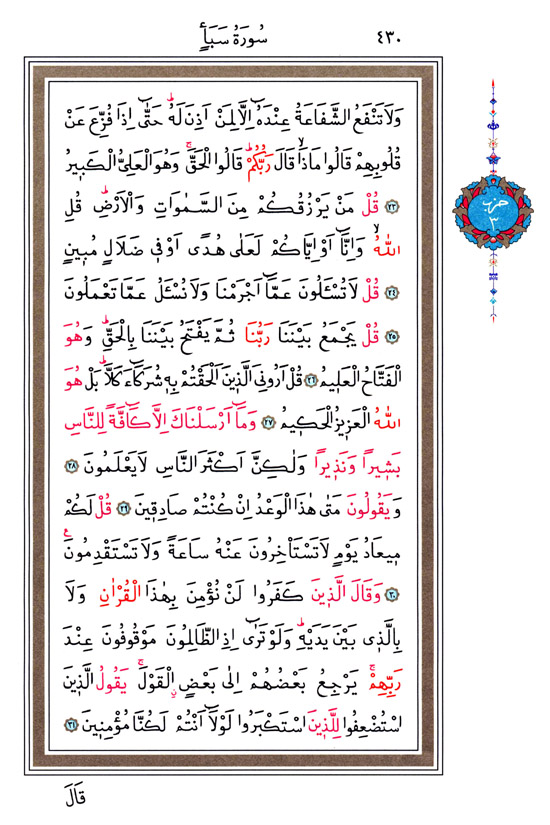 ٤٣٠
سُورَةُ سَبَأٍ
وَلَا تَنْفَعُ الشَّفَاعَةُ عِنْدَهُٓ اِلَّا لِمَنْ اَذِنَ لَهُۜ حَتّٰٓى اِذَا فُزِّعَ عَنْ
قُلُوبِهِمْ قَالُوا مَاذَاۙ قَالَ رَبُّكُمْۜ قَالُوا الْحَقَّۚ وَهُوَ الْعَلِيُّ الْكَب۪يرُ
﴿٢٣﴾ قُلْ مَنْ يَرْزُقُكُمْ مِنَ السَّمٰوَاتِ وَالْاَرْضِۜ قُلِ
اللّٰهُۙ وَاِنَّٓا اَوْ اِيَّاكُمْ لَعَلٰى هُدًى اَوْ ف۪ي ضَلَالٍ مُب۪ينٍ
﴿٢٤﴾ قُلْ لَا تُسْـَٔلُونَ عَمَّٓا اَجْرَمْنَا وَلَا نُسْـَٔلُ عَمَّا تَعْمَلُونَ
﴿٢٥﴾ قُلْ يَجْمَعُ بَيْنَنَا رَبُّنَا ثُمَّ يَفْتَحُ بَيْنَنَا بِالْحَقِّۜ وَهُوَ
الْفَتَّاحُ الْعَل۪يمُ ﴿٢٦﴾ قُلْ اَرُونِيَ الَّذ۪ينَ اَلْحَقْتُمْ بِه۪ شُرَكَٓاءَ كَلَّاۜ بَلْ هُوَ
اللّٰهُ الْعَز۪يزُ الْحَك۪يمُ ﴿٢٧﴾ وَمَٓا اَرْسَلْنَاكَ اِلَّا كَٓافَّةً لِلنَّاسِ
بَش۪يرًا وَنَذ۪يرًا وَلٰكِنَّ اَكْثَرَ النَّاسِ لَا يَعْلَمُونَ ﴿٢٨﴾
وَيَقُولُونَ مَتٰى هٰذَا الْوَعْدُ اِنْ كُنْتُمْ صَادِق۪ينَ ﴿٢٩﴾ قُلْ لَكُمْ
م۪يعَادُ يَوْمٍ لَا تَسْتَأْخِرُونَ عَنْهُ سَاعَةً وَلَا تَسْتَقْدِمُونَ۟
﴿٣٠﴾ وَقَالَ الَّذ۪ينَ كَفَرُوا لَنْ نُؤْمِنَ بِهٰذَا الْقُرْاٰنِ وَلَا
بِالَّذ۪ي بَيْنَ يَدَيْهِۜ وَلَوْ تَرٰٓى اِذِ الظَّالِمُونَ مَوْقُوفُونَ عِنْدَ
رَبِّهِمْۚ يَرْجِعُ بَعْضُهُمْ اِلٰى بَعْضٍۨ الْقَوْلَۚ يَقُولُ الَّذ۪ينَ
اسْتُضْعِفُوا لِلَّذ۪ينَ اسْتَكْبَرُوا لَوْلَٓا اَنْتُمْ لَكُنَّا مُؤْمِن۪ينَ ﴿٣١﴾
قَالَ
حزب
٣